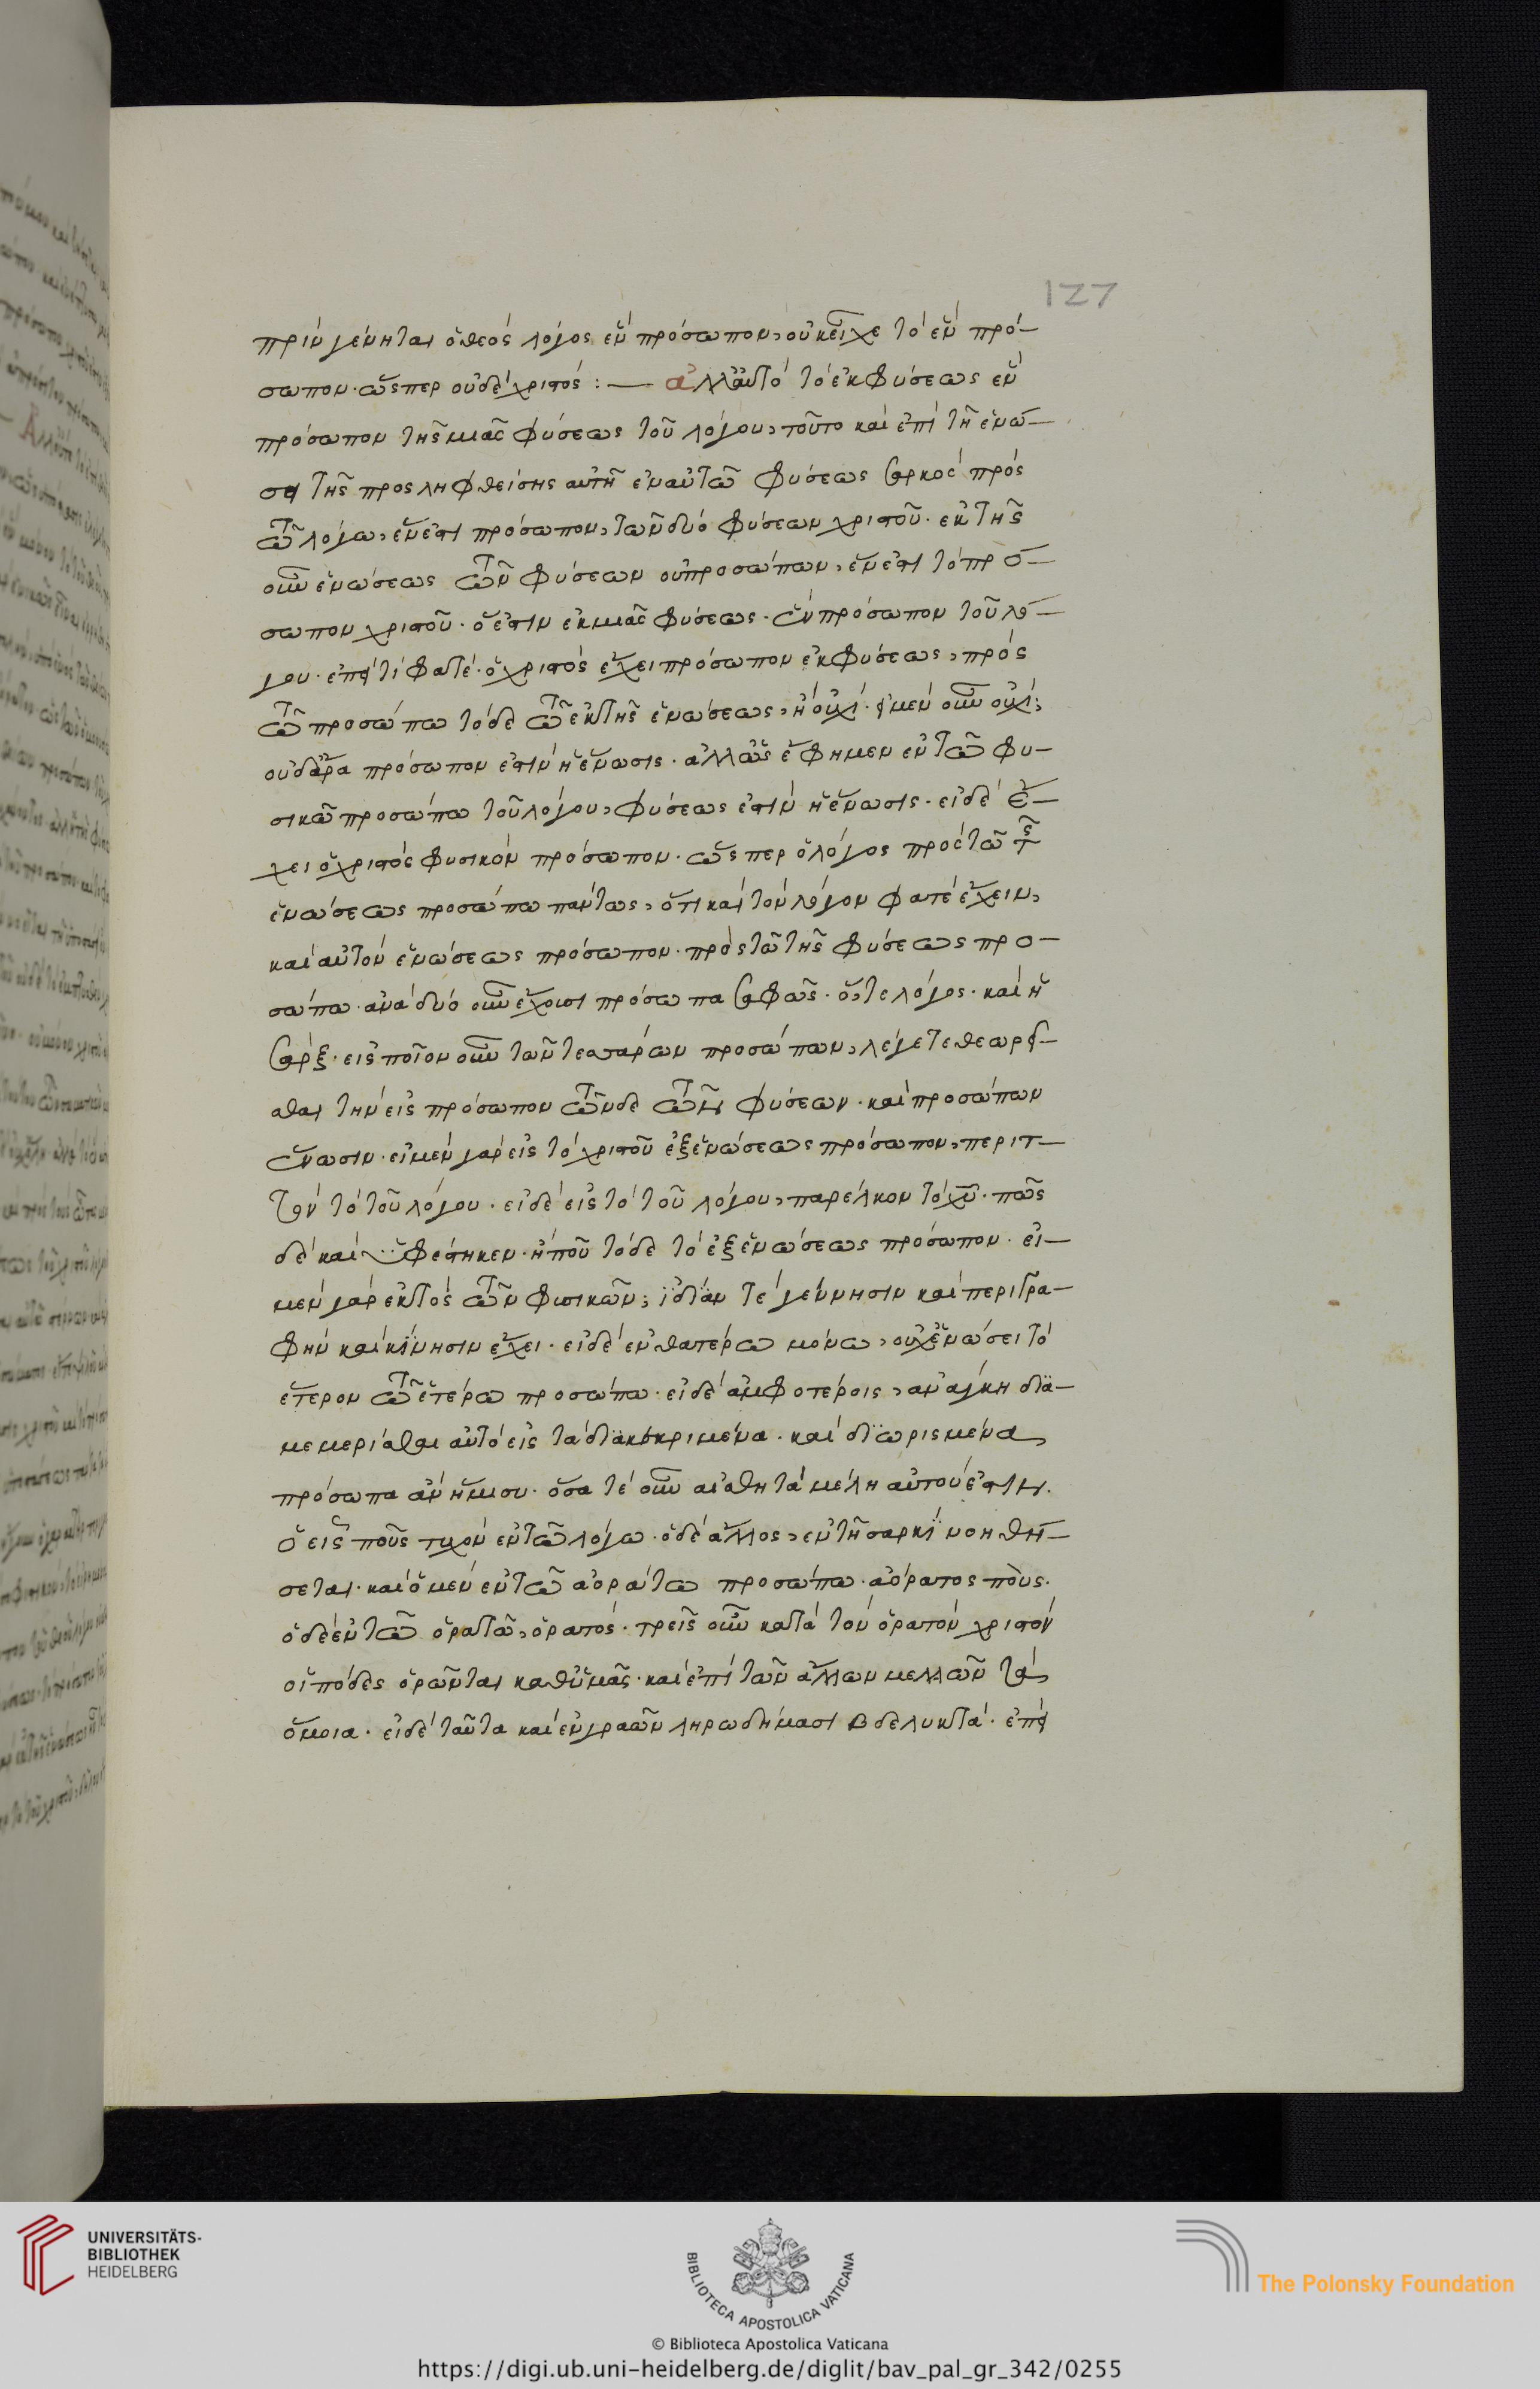 127
πρὶν γένηται ὁ θεὸς λόγος ἓν πρόσωπον, οὐκ εἶχε τὸ ἓν πρό-
σωπον. ὥσπερ οὐδὲ χριστός : — ἀλλ' αὐτὸ τὸ ἐκ φύσεως ἓν
πρόσωπον τῆς μιᾶς φύσεως τοῦ λόγου, τοῦτο καὶ ἐπὶ τῇ ἑνώ-
σει τῆς προσληφθείσης αὐτῇ ἐν αὐτῶ φύσεως σαρκὸς πρὸς
τῶ λόγω, ἕν ἐστι πρόσωπον, τῶν δύο φύσεων χριστοῦ. ἐκ τῆς
οὖν ἑνώσεως τῶν φύσεων οὐ προσώπων, ἕν ἐστι τὸ πρό-
σωπον χριστοῦ. ὅ ἐστιν ἐκ μιᾶς φύσεως. ἓν πρόσωπον τοῦ λό-
γου. ἐπεὶ τί φατέ. ὁ χριστὸς ἔχει πρόσωπον ἐκ φύσεως, πρὸς
τῶ προσώπω τόδε τῶ ἐκ τῆς ἑνώσεως, ἢ οὐχί. εἰ μὲν οὖν οὐχί;
οὐδ' ἄρα πρόσωπον ἐστὶν ἡ ἕνωσις. ἀλλ' ὡς ἔφημεν ἐν τῶ φυ-
σικῶ προσώπω τοῦ λόγου, φύσεως ἐστὶν ἡ ἕνωσις. εἰ δὲ ἔ-
χει ὁ χριστὸς φυσικὸν πρόσωπον. ὥσπερ ὁ λόγος πρὸς τῶ τῆς
ἑνώσεως προσώπω πάντως, ὅτι καὶ τὸν λόγον φατὲ ἔχειν,
καὶ αὐτὸν ἑνώσεως πρόσωπον. πρὸς τῶ τῆς φύσεως προ-
σώπω. ἀνὰ δύο οὖν ἔχουσι πρόσωπα σαφῶς. ὅ, τε λόγος. καὶ ἡ
σάρξ. εἰς ποῖον οὖν τῶν τεσσάρων προσώπων, λέγετε θεωρεῖ-
σθαι τὴν εἰς πρόσωπον τῶνδε τῶν φύσεων. καὶ προσώπων
ἕνωσιν. εἰ μὲν γὰρ εἰς τὸ χριστοῦ ἐξ ἑνώσεως πρόσωπον, περιτ-
τὸν τὸ τοῦ λόγου. εἰ δὲ εἰς τὸ τοῦ λόγου, παρέλκον τὸ χυ. πῶς
δὲ καὶ ὑφέστηκεν. ἢ ποῦ τόδε τὸ ἐξ ἑνώσεως πρόσωπον. εἰ-
μὲν γὰρ ἐκτὸς τῶν φυσικῶν; ἰδίαν τε γέννησιν καὶ περιγρα-
φὴν καὶ κίνησιν ἔχει. εἰ δὲ ἐν θατέρω μόνω, οὐχ ἑνώσει τὸ
ἕτερον τῶ ἑτέρω προσώπω. εἰ δὲ ἀμφοτέροις, ἀνάγκη δια-
μεμερίσθαι αὐτὸ εἰς τὰ διακεκριμένα. καὶ διωρισμένα
πρόσωπα ἀν' ἥμισυ. ὅσα τὲ οὖν αἰσθητὰ μέλη αὐτοῦ ἐστιν.
ὁ εἷς ποῦς τυχὸν ἐν τῶ λόγω. ὁ δὲ ἄλλος, ἐν τῇ σαρκὶ νοηθή-
σεται. καὶ ὁ μὲν ἐν τῶ ἀοράτω προσώπω. ἀόρατος ποὺς.
ὁ δὲ ἐν τῶ ὁρατῶ, ὁρατός. τρεῖς οὖν κατὰ τὸν ὁρατὸν χριστὸν
οἱ πόδες ὁρῶνται καθ' ὑμᾶς. καὶ ἐπὶ τῶν ἄλλων μελλῶν τὰ
ὅμοια. εἰ δὲ ταῦτα καὶ ἐν γραῶν ληρωδήμασι βδελυκτά. ἐπεὶ
UNIVERSITÄTS-
BIBLIOTHEK
HEIDELBERG
BIBLIOTECA APOSTOLICA VATICANA
The Polonsky Foundation
© Biblioteca Apostolica Vaticana
https://digi.ub.uni-heidelberg.de/diglit/bav_pal_gr_342/0255